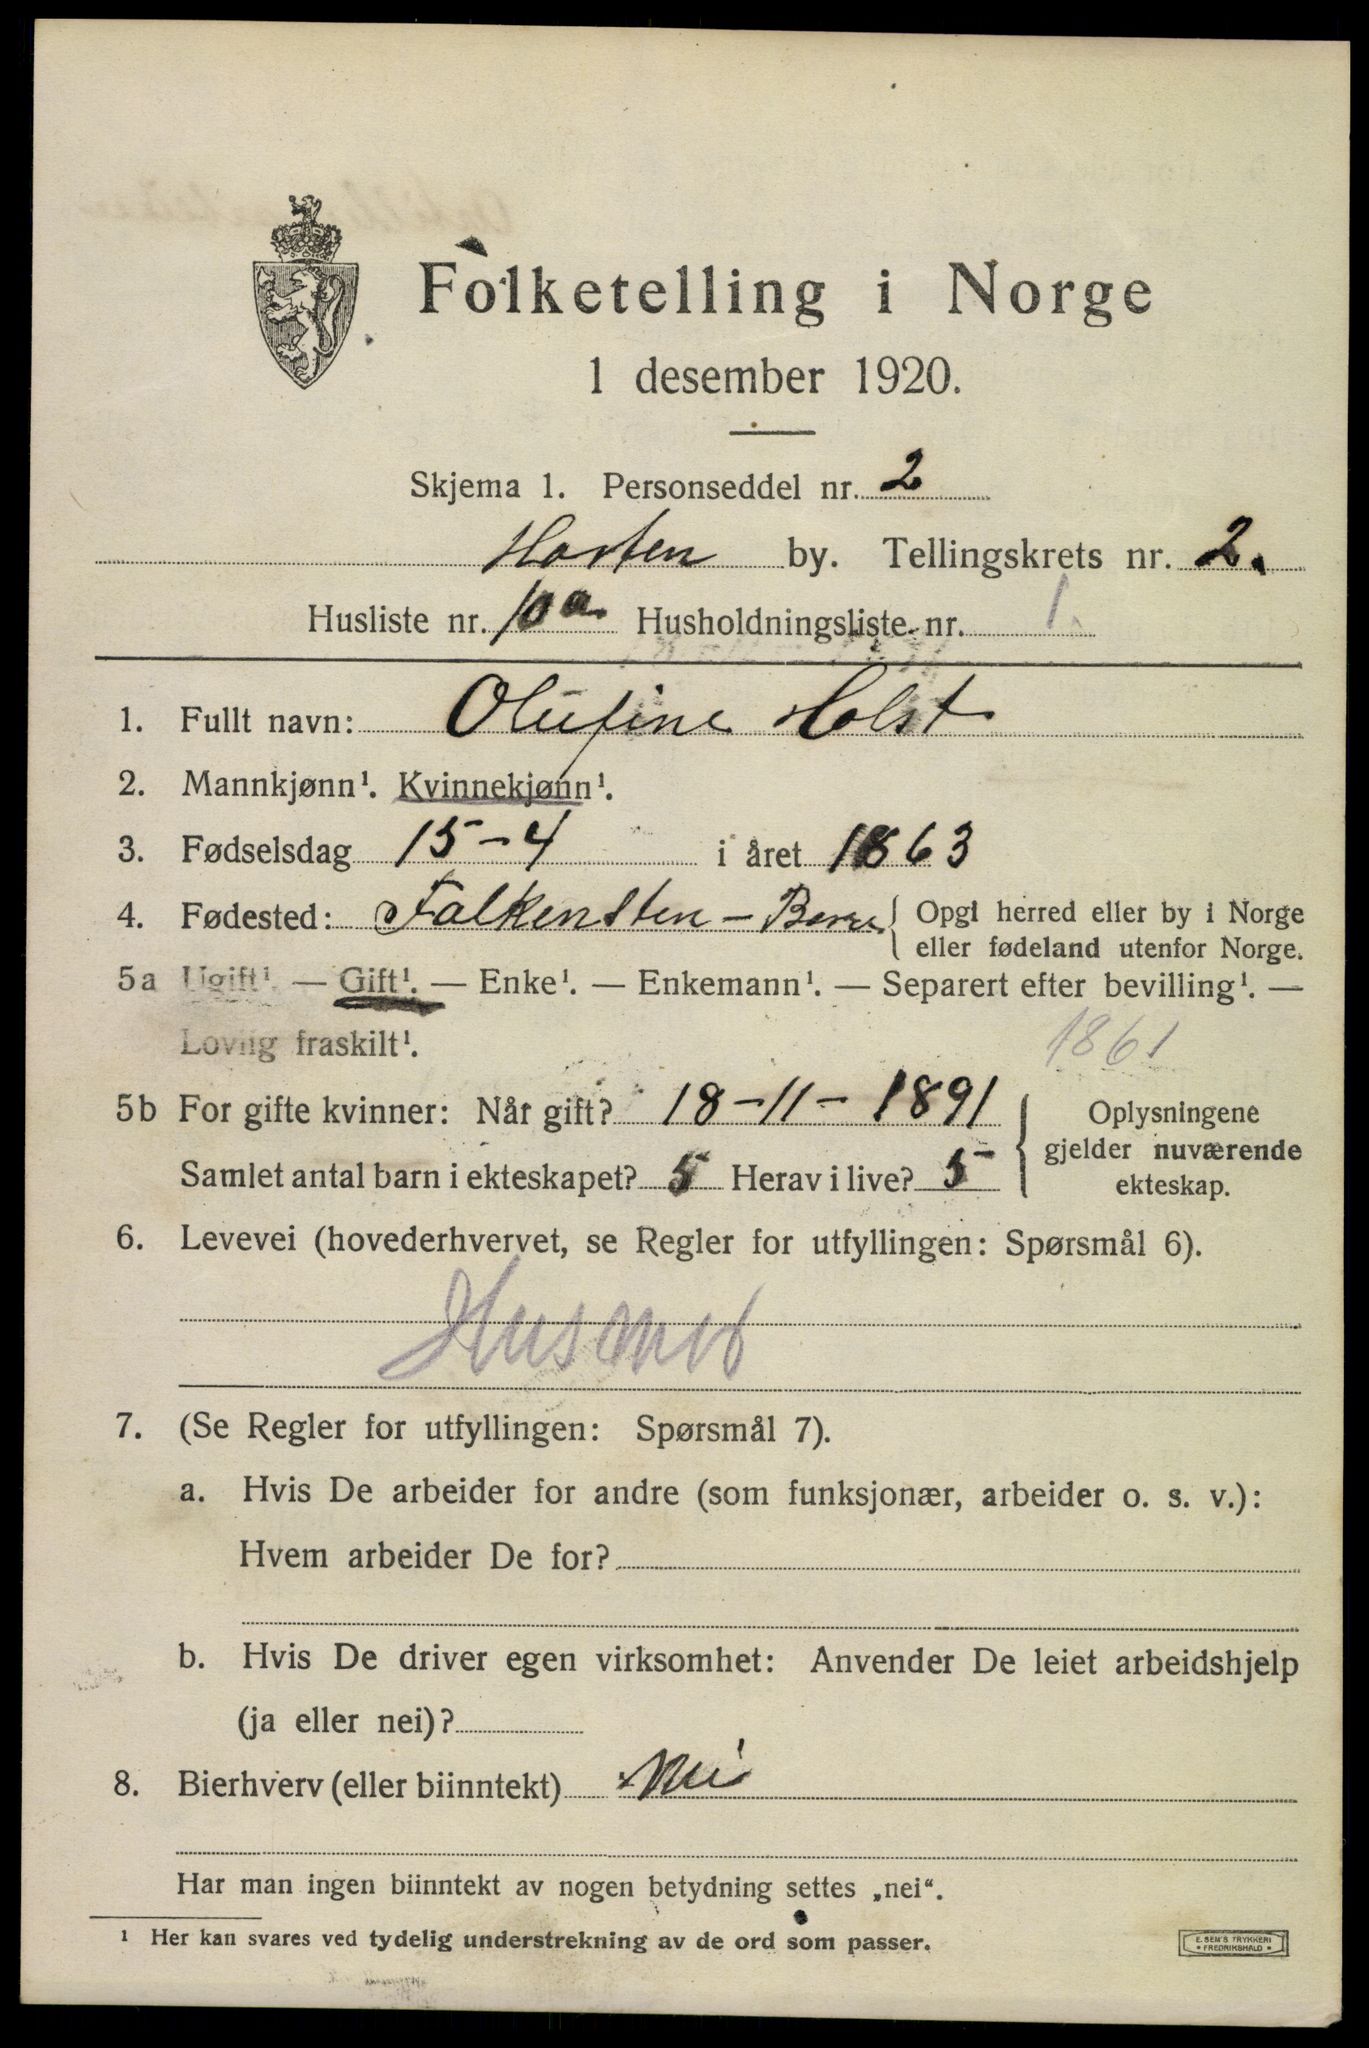 Folketelling i Norge
1 desember 1920.
Skjema 1. Personseddel nr. 2
Horten by. Tellingskrets nr. 2.
Husliste nr. 10a Husholdningsliste nr. 1.
1. Fullt navn: Olufine Holst
2. Mannkjønn¹. Kvinnekjønn¹.
3. Fødselsdag 15-4 i året 1863
4. Fødested: Falkensten - Borre { Opgi herred eller by i Norge
eller fødeland utenfor Norge.
5a Ugift¹. — Gift¹. — Enke¹. — Enkemann¹. — Separert efter bevilling¹. —
Lovlig fraskilt¹.
1861
5b For gifte kvinner: Når gift? 18-11-1891
Samlet antal barn i ekteskapet? 5 Herav i live? 5
Oplysningene
gjelder nuværende
ekteskap.
6. Levevei (hovederhvervet, se Regler for utfyllingen: Spørsmål 6).
Husmor
7. (Se Regler for utfyllingen: Spørsmål 7).
a. Hvis De arbeider for andre (som funksjonær, arbeider o. s. v.):
Hvem arbeider De for?
b. Hvis De driver egen virksomhet: Anvender De leiet arbeidshjelp
(ja eller nei)?
8. Bierhverv (eller biinntekt) Nei
Har man ingen biinntekt av nogen betydning settes „nei“.
¹ Her kan svares ved tydelig understrekning av de ord som passer.
E. SEM'S TRYKKERI
FREDRIKSHALD